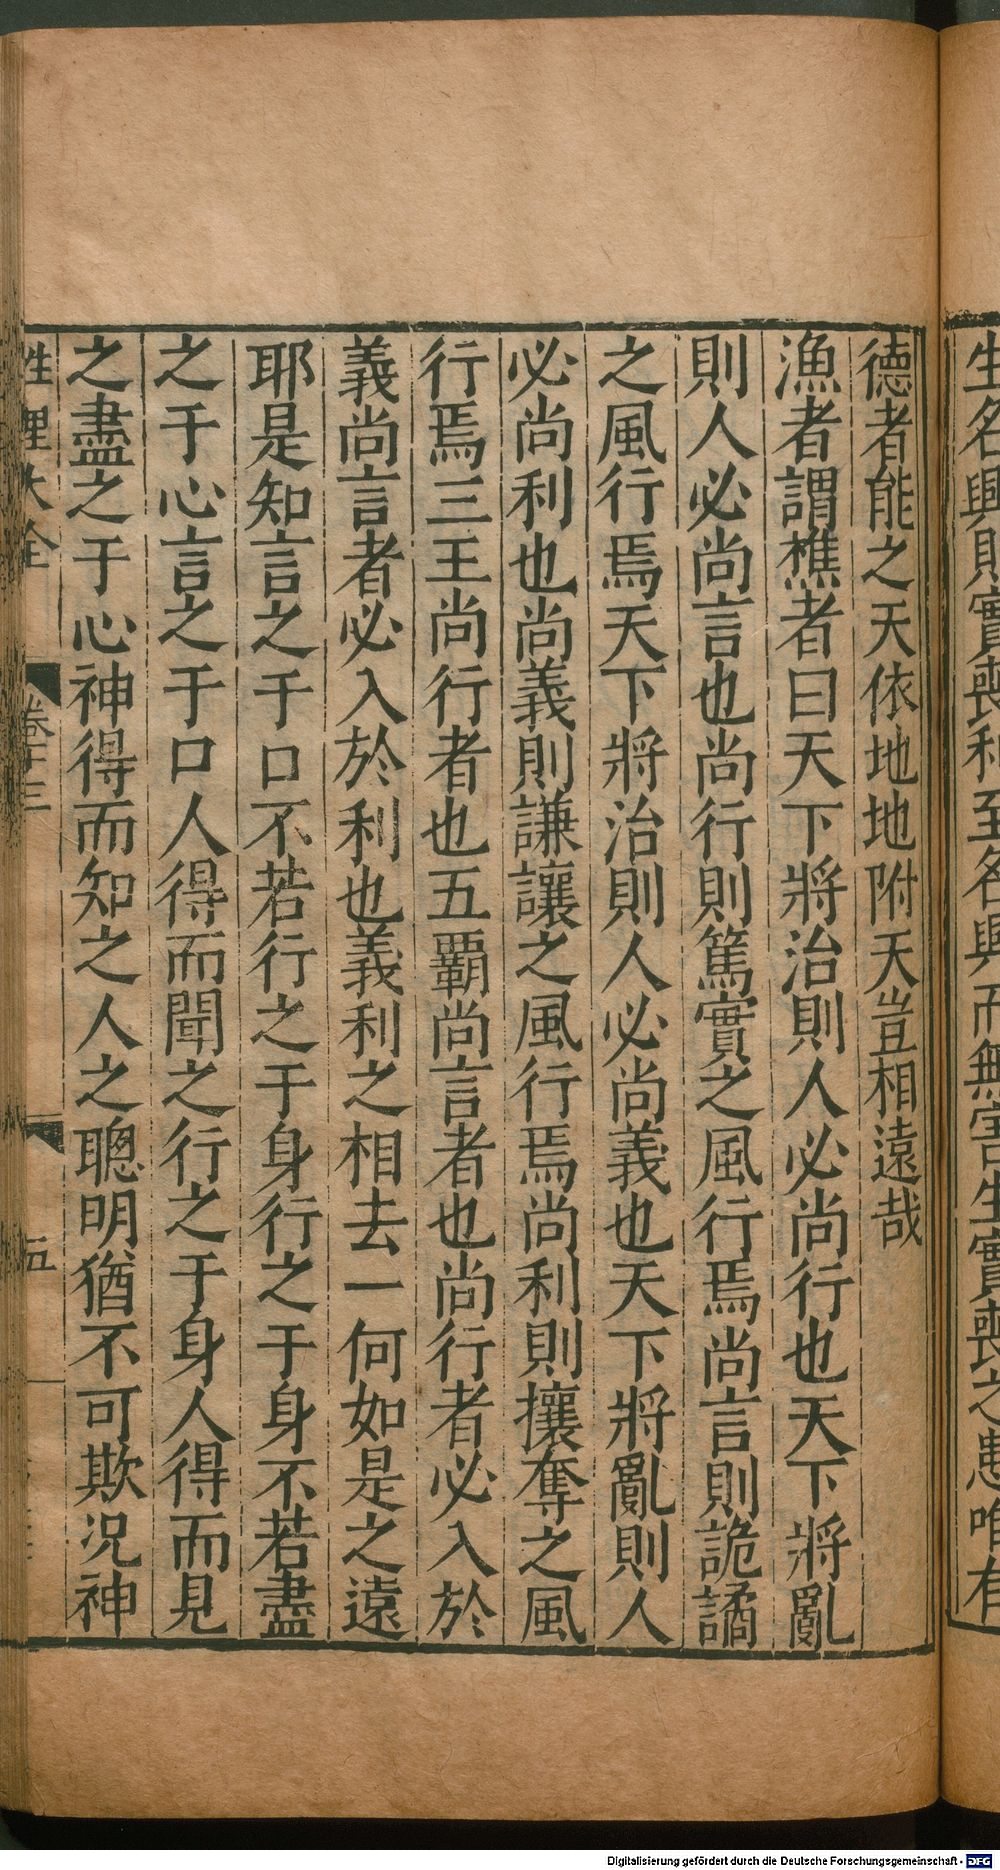 生名興則實喪利至名興而無害生實喪之患唯有
德者能之天依地地附天豈相遠哉
漁者謂樵者曰天下將治則人必尚行也天下將亂
則人必尚言也尚行則篤實之風行焉尚言則詭譎
之風行焉天下將治則人必尚義也天下將亂則人
必尚利也尚義則謙讓之風行焉尚利則攘奪之風
行焉三王尚行者也五覇尚言者也尚行者必入於
義尚言者必入於利也義利之相去一何如是之遠
耶是知言之于口不若行之于身行之于身不若盡
之于心言之于口人得而聞之行之于身人得而見
之盡之于心神得而知之人之聰明猶不可欺况神
性理大全 卷十三 五
Digitalisierung gefördert durch die Deutsche Forschungsgemeinschaft - DFG